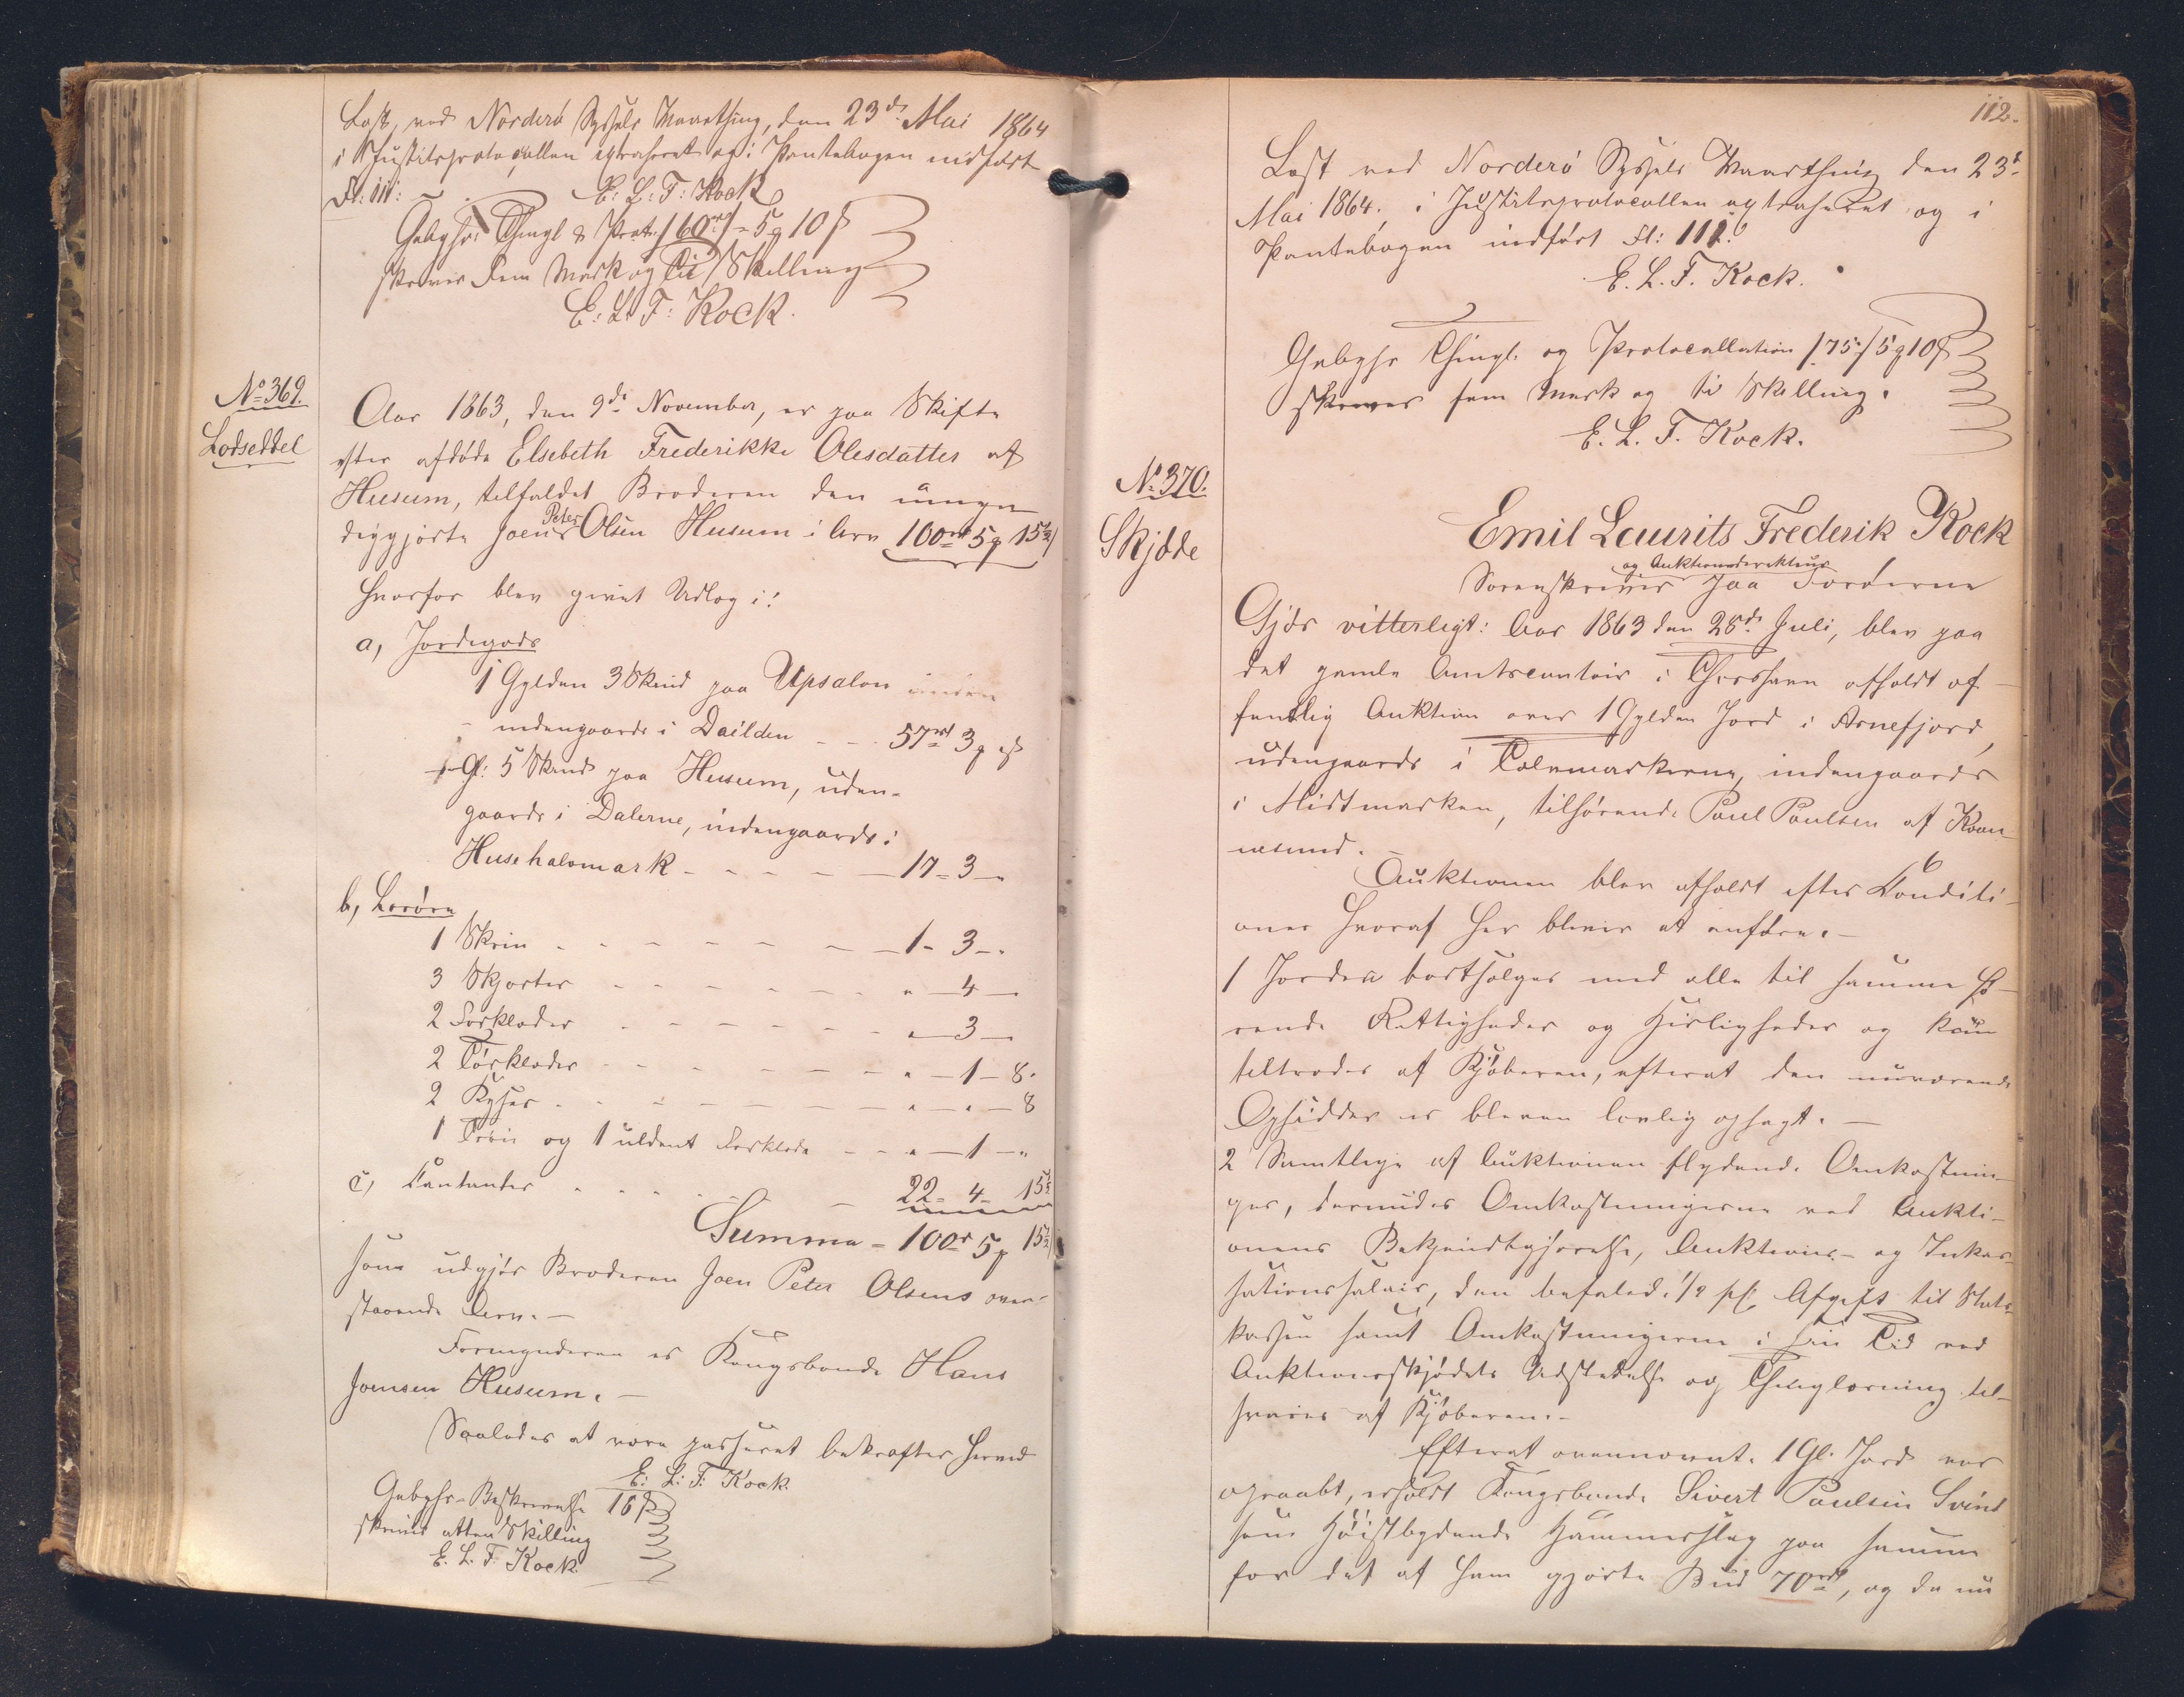 Læst ved Norderö Syssels Vaarthing, den 23de Mai 1864
i Justitsprotocollen extraheret og i Pantebogen indført
Fl: 111:
E: L: F: Kock
Gebyhr: Thingl & Prot: /60rd/ - 5 10
skriver Fem Mark og Tie Skilling
E: L: F: Kock.
No 369.
Lodseddel
Aar 1863, den 9de November, er paa Skifte
efter afdøde Elsebeth Frederikke Olesdatter af
Husum, tilfaldet Broderen den umyn
diggjorte Joen Peter Olsen Husum i Arv 100rd 5 15½
hvorfor blev givet Udlæg i:
a, Jordegods
1 Gylden 3 Skind paa Upsalon
indengaards i Dailden - - - 57rd 3
Gl: 5 Skind paa Husum, uden-
gaards i Dalerne, indengaards i
Husehalvmark - - - - - 17 - 3 -
b, Løsøre
1 Skrin - - - - - - - 1 - 3 -
3 Skjorter - - - - - - - " - 4 -
2 Forklæder - - - - - - - " - 3 -
2 Tørklæder - - - - - - - " - 1 - 8.
2 Kyser - - - - - - - " - " - 8
1 Trøie og 1 uldent Forklæde - - - " - 1 - "
c, Contanter - - - - - 22 - 4 - 15½
Summa = 100rd 5 15½
som udgjør Broderen Joen Peter Olsens over-
staaende Arv. -
Formynderen er Kongsbonde Hans
Joensen Husum. -
Saaledes at være passeret bekræfter herved
E: L: F: Kock.
Gebyhr - Beskrivelse 16
skriver atten Skilling
E. L. F. Kock
112.
Læst ved Norderö Syssels Vaarthing den 23de
Mai 1864, i Justitsprotocollen extraheret og i
Pantebogen indført Fl: 111.
E. L. F. Kock.
Gebyhr Thingl. og Protocollation /75/ 5 10
skriver fem Mark og ti Skilling.
E. L. F. Kock.
No 370.
Skjøde
Emil Laurits Frederik Kock
og Auktionsdirekteur
Sorenskriver paa Færöerne
Gjör vitterligt: Aar 1863 den 28de Juli, blev paa
det gamle Amtscontoir i Thorshavn afholdt of-
fentlig Auktion over 1 Gylden Jord i Arnefjord,
udengaards i indengaards
i Midtmarken, tilhørende Poul Poulsen af Kvan-
nesund. -
Auktionen blev afholdt efter 6 Konditi-
oner hvoraf her bliver at anføre. -
1 Jorden bortsælges med alle til samme hö-
rende Rettigheder og Herligheder og kan
tiltrædes af Kjøberen, efterat den nuværende
Opsidder er bleven lovlig opsagt. -
2 Samtlige af Auktionen flydende Omkostnin-
ger, derunder Omkostningerne ved Aukti-
onens Bekjendtgjørelse, Auktions- og Inkas-
sationssalair, den befalede ½ pC Afgift til Stats-
kassen samt Omkostningerne i sin Tid ved
Auktionsskjødets Udstedelse og Thinglæsning til-
svares af Kjøberen. -
Efterat ovennævnte 1 Gl. Jord var
opraabt, erholdt Kongsbonde Sivert Poulsen Svinø
som Høistbydende Hammerslag paa samme
for det af ham gjorte Bud 70rd, og da nu